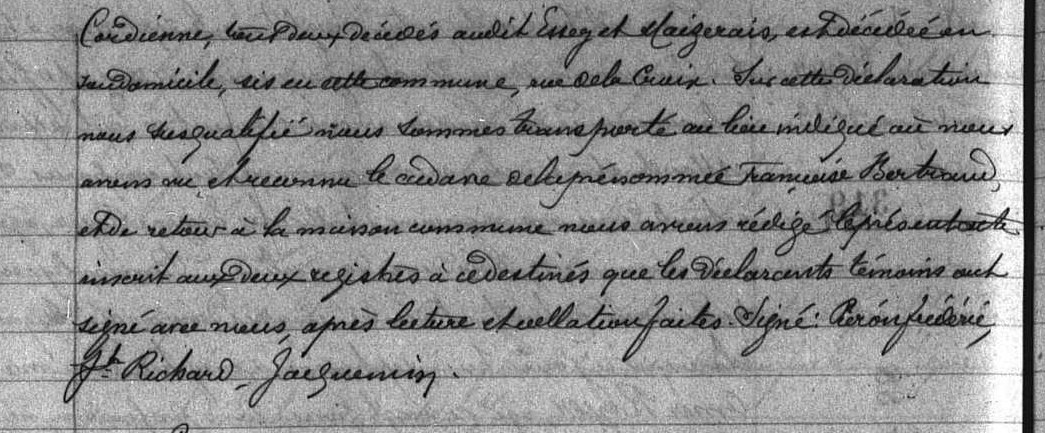 Cordienne, tout deux décédés audit Essey et Maizerais, est décédée en
son domicile, sis en cette commune, rue de la Croix. Sur cette déclaration
nous susqualifié nous sommes transporté au lieu indiqué où nous
avons vu et reconnu le cadavre de la prénommée Françoise Bertrand,
et de retour à la maison commune nous avons rédigé le présent acte
inscrit aux deux registres à ce destinés que les déclarants témoins ont
signé avec nous, après lecture et collation faites. Signé: Piéron frédéric,
Jh Richard, Jacquemin.